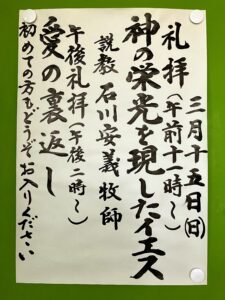 三月十五日(日)
礼拝(午前十時〜)
神の栄光を現したイエス
説教 石川安義牧師
午後礼拝(午後二時〜)
愛の裏返し
初めての方もどうぞお入りください